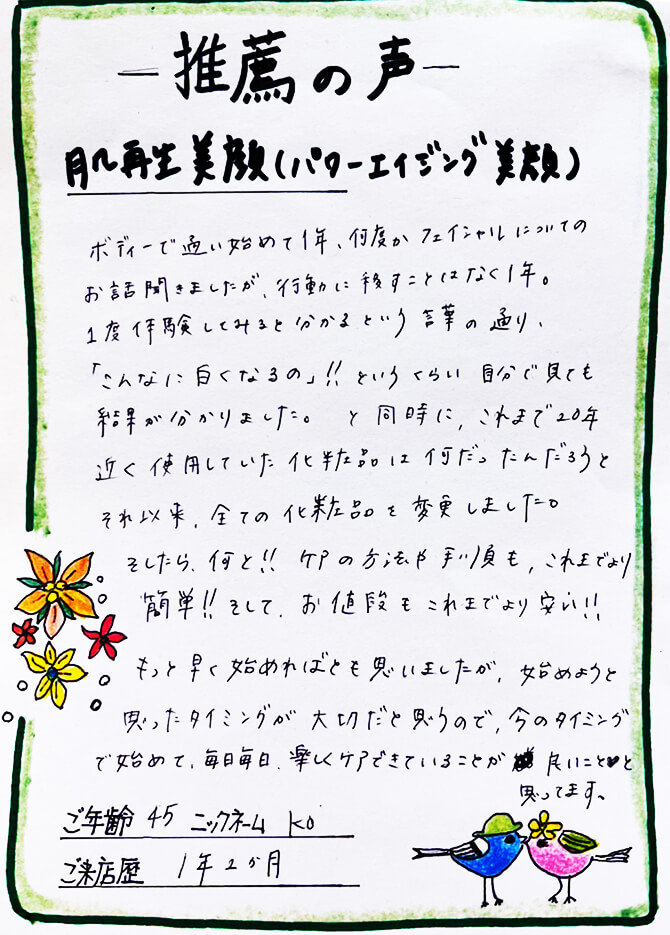 －推薦の声－
肌再生美顔(パターエイジング美顔)
ボディーで通い始めて1年、何度かフェイシャルについての
お話聞きましたが、行動に移すことはなく1年。
1度体験してみると分かるという言葉の通り、
「こんなに白くなるの」!!というくらい自分で見ても
結果が分かりました。と同時に、これまで20年
近く使用していた化粧品は何だったんだろうと
それ以来、全ての化粧品を変更しました。
そしたら、何と!!ケアの方法や手順も、これまでより
簡単!!そして、お値段もこれまでより安い!!
もっと早く始めればとも思いましたが、始めようと
思ったタイミングが大切だと思うので、今のタイミング
で始めて、毎日毎日、楽しくケアできていることが良いこと♥と
思ってます。
ご年齢 45 ニックネーム KO
ご来店歴 1年2か月